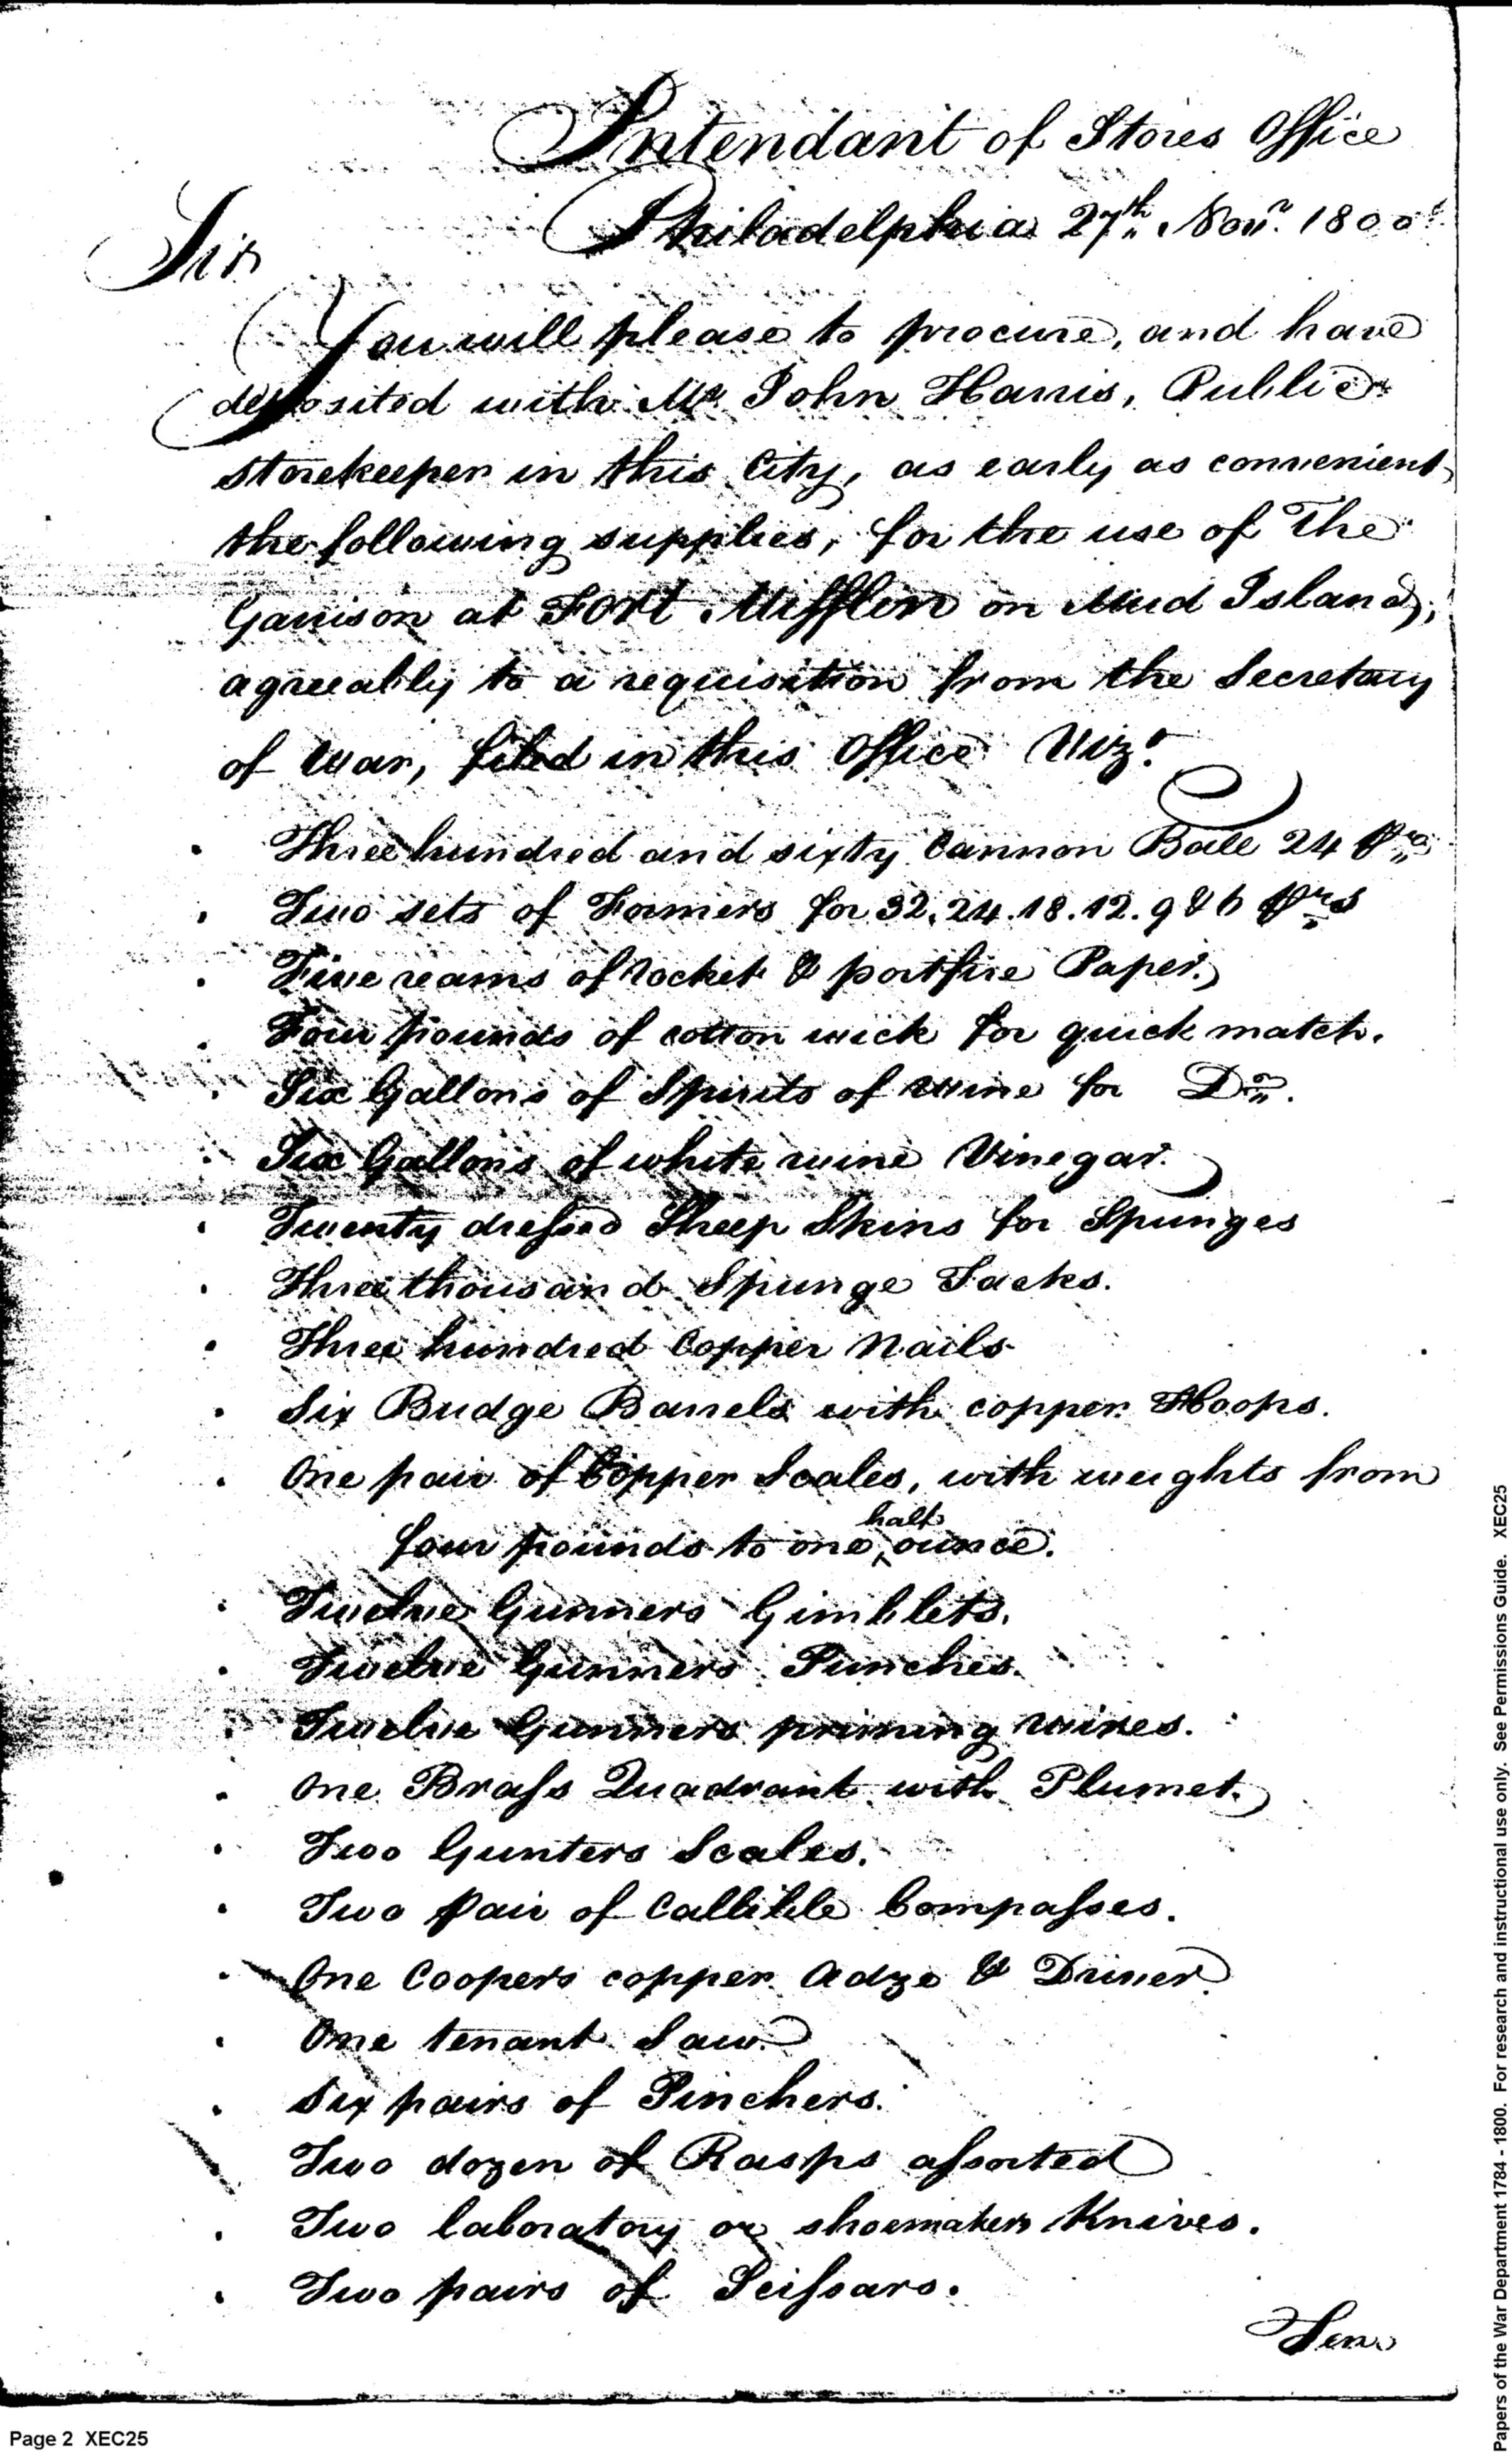 Intendant of Stores Office
Philadelphia 27th Novr. 1800
Sir
You will please to procure, and have
deposited with Mr. John Harris, Public
storekeeper in this City, as early as convenient,
the following supplies, for the use of The
Garrison at Fort Mifflin on Mud Island,
agreeably to a requisition from the Secretary
of War, filed in this Office Vizt.
Three hundred and sixty Cannon Ball 24 Prs
Two sets of Formers for 32. 24. 18. 12. 9 & 6 Prs
Five reams of rocket & portfire Paper.
Four pounds of cotton wick for quick match.
Six Gallons of Spirits of wine for Do.
Six Gallons of white wine Vinegar.
Twenty dressed Sheep Skins for Spunges
Three thousand Spunge Tacks.
Three hundred Copper Nails
Six Budge Barrels with copper Hoops.
One pair of Copper Scales, with weights from
half
four pounds to one ^ ounce.
Twelve Gunners Gimblets.
Twelve Gunners Punches.
Twelve Gunners priming wires.
One Brass Quadrant with Plumet.
Two Gunters Scales.
Two pair of Callible Compasses.
One Coopers copper Adze & Driver.
One tenant Saw.
Six pairs of Pinchers.
Two dozen of Rasps assorted
Two laboratory or shoemakers Knives.
Two pairs of Scissars.
Page 2 XEC25
Papers of the War Department 1784 - 1800. For research and instructional use only. See Permissions Guide. XEC25